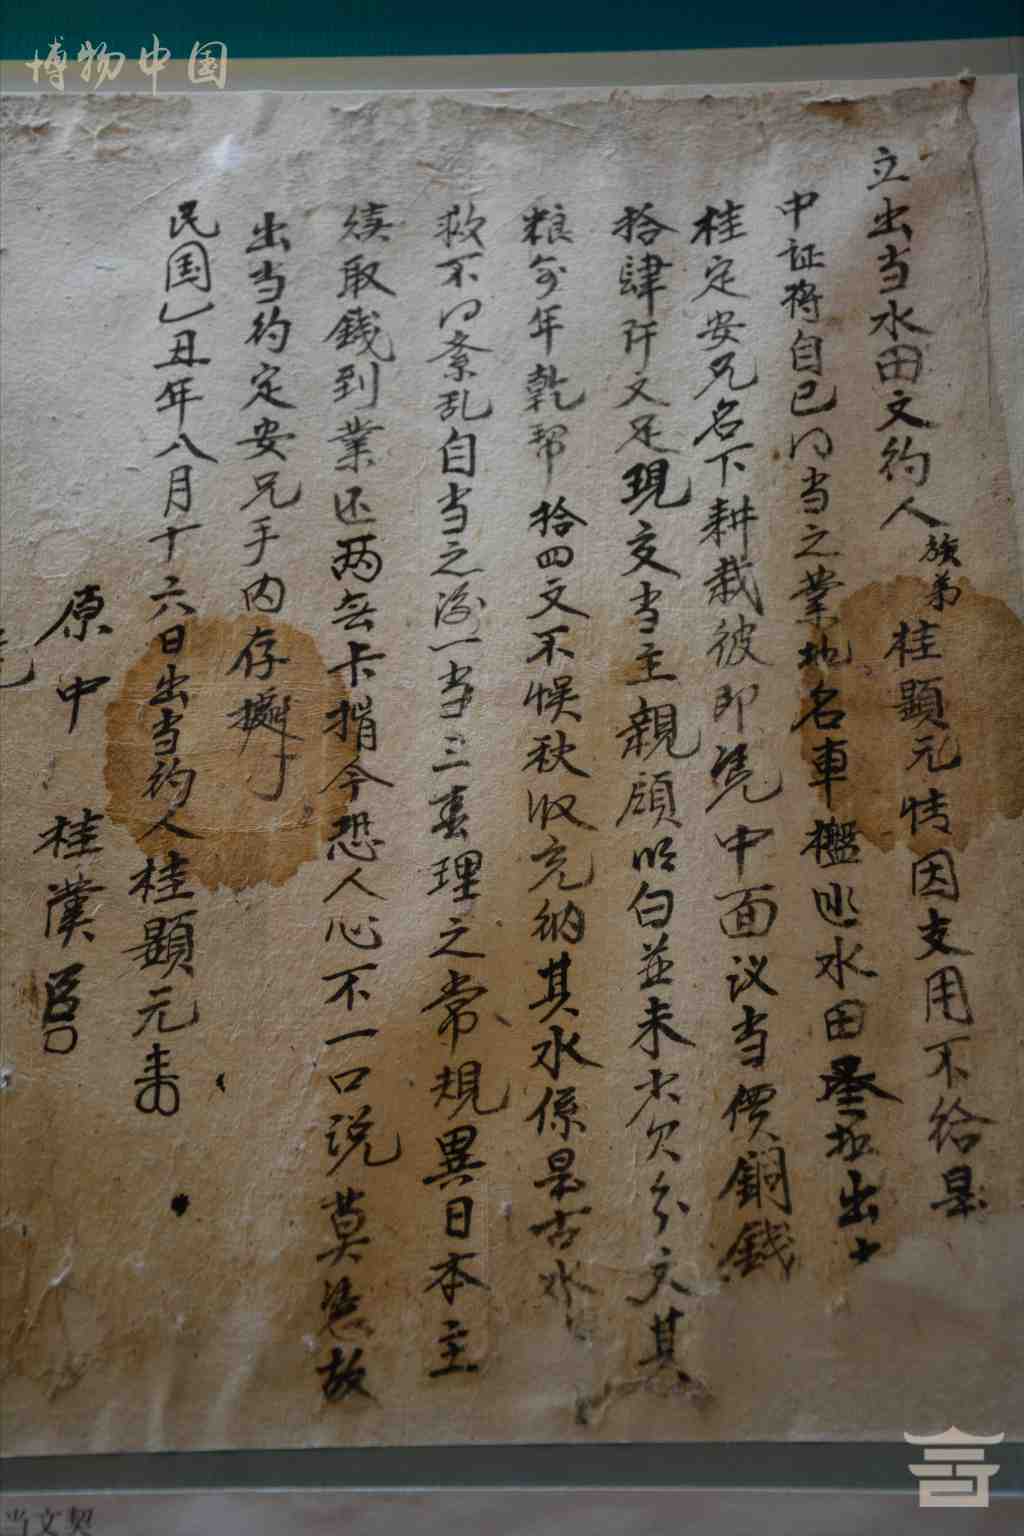 博物中国
立出当水田文约人族弟桂顕元情因支用不给是
中证将自己之当之業地名車檻水田出
桂定安兄名下耕栽彼即凭中面议当價銅錢
拾肆仟文足現交当主親顔明白並未欠分文其
粮每年乾帮拾四文不悮秋收充納其水係是古水
救不紊乱自当之後一当三春理之常規異日本主
续取錢到業还两无卡措今恐人心不一口说莫凭故
出当约定安兄手内存據
民国乙丑年八月十六日出当约人桂顕元
原中 桂漢
当文契